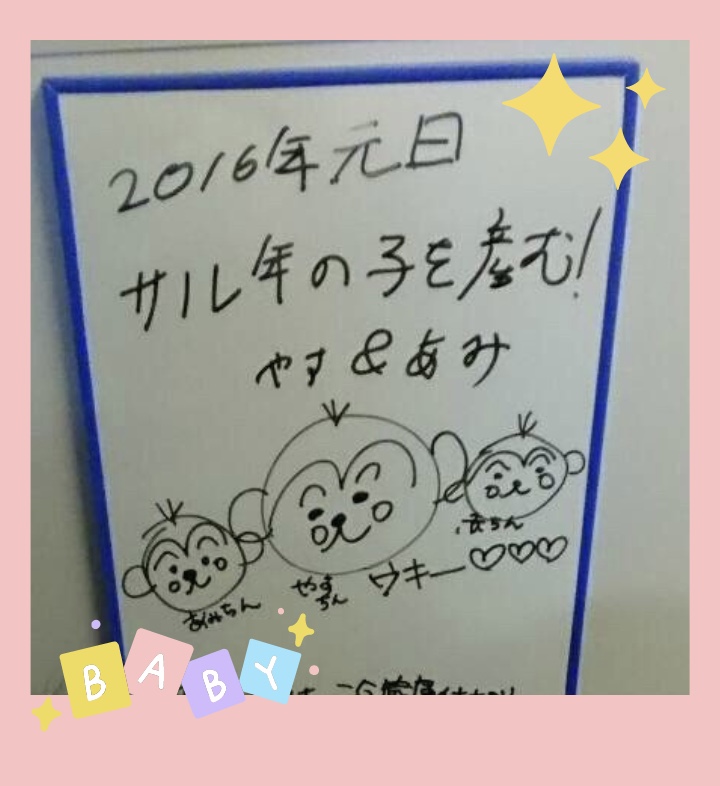 2016年元日
サル年の子を産む!
やす&あみ
あみちん
やすちん
ウキー♡♡♡
BABY